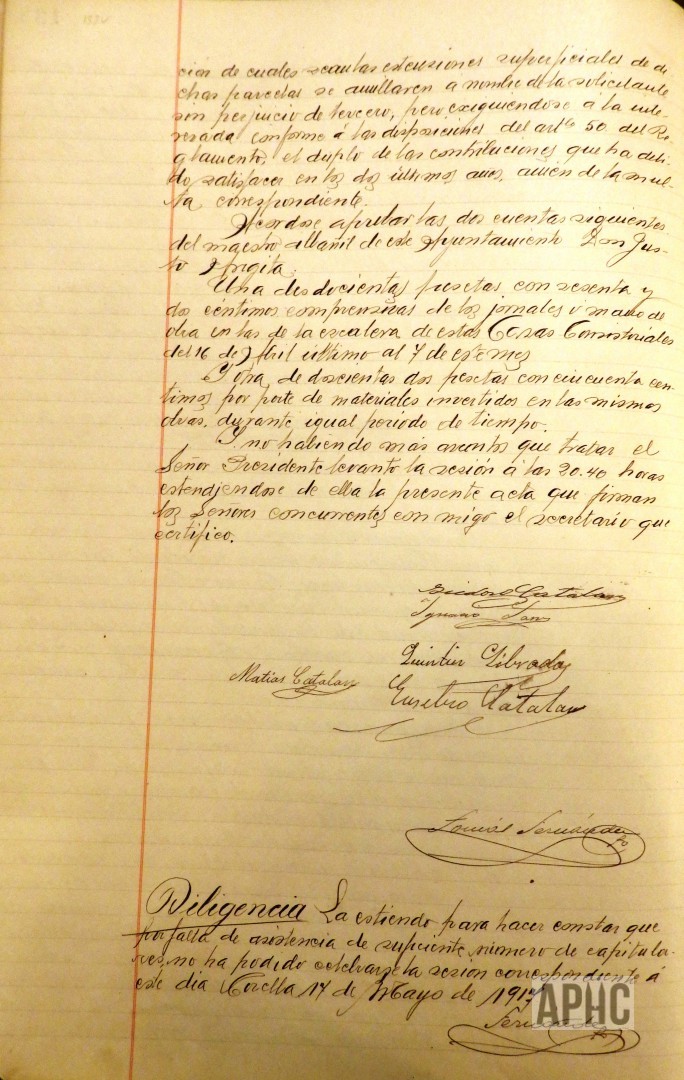 cion de cuales sean las estensiones superficiales de di
chas parcelas se amillaren a nombre de la solicitante
sin perjuicio de tercero, pero exigiendose a la inte
resada conforme á las disposiciones del artº 50 del Re
glamento, el duplo de las contribuciones que ha debi
do satisfacer en los dos últimos años, amén de la mul
ta correspondiente.
Acordose aprobar las dos cuentas siguientes
del maestro albañil de este Ayuntamiento Don Jus
to
Una de doscientas pesetas con sesenta y
dos céntimos comprensivas de los jornales ó mano de
obra en las de la escalera de estas Casas Consistoriales
del 16 de Abril último al 7 de este mes
Y otra de doscientas dos pesetas con cincuenta cen
timos por porte de materiales invertidos en las mismas
obras, durante igual periodo de tiempo.
Y no habiendo más asuntos que tratar el
Señor Presidente levantó la sesión á las 20.40 horas
estendiendose de ella la presente acta que firman
los Señores concurrentes con migo el secretario que
certifico.
Catalan
Ignacio
Quintin Librada
Matias Catalan
Eusebio Catalan
Tomás Fernández
Diligencia La estiendo para hacer constar que
por falta de asistencia de suficiente número de capitula-
res, no ha podido celebrarse la sesión correspondiente á
este dia Corella 17 de Mayo de 1917
Fernández
APHC